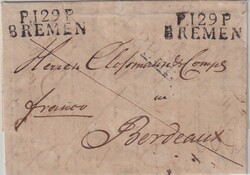 P.129.P.
BREMEN
P.129.P.
BREMEN
Herren
in
franco
Bordeaux